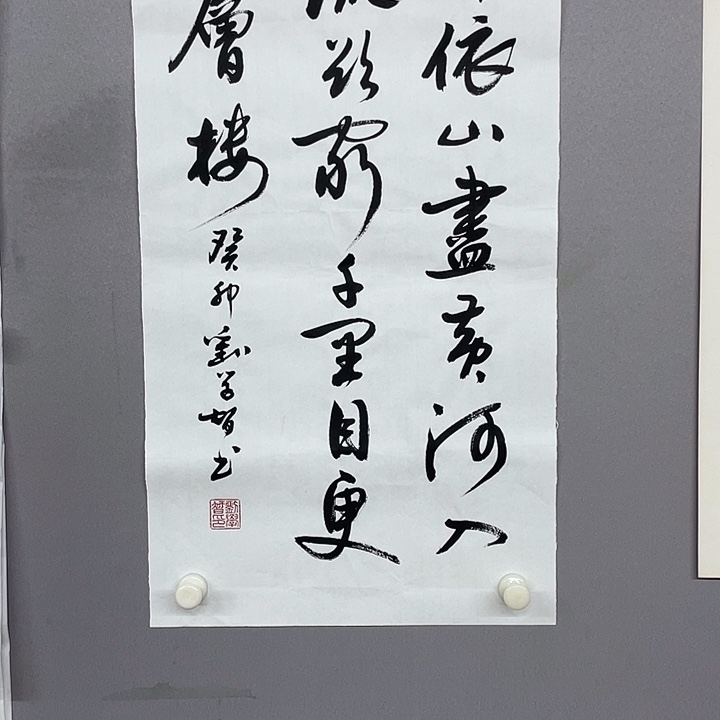 依山盡黃河入
流欲窮千里目更
層樓
癸卯劉學智書
劉學智印